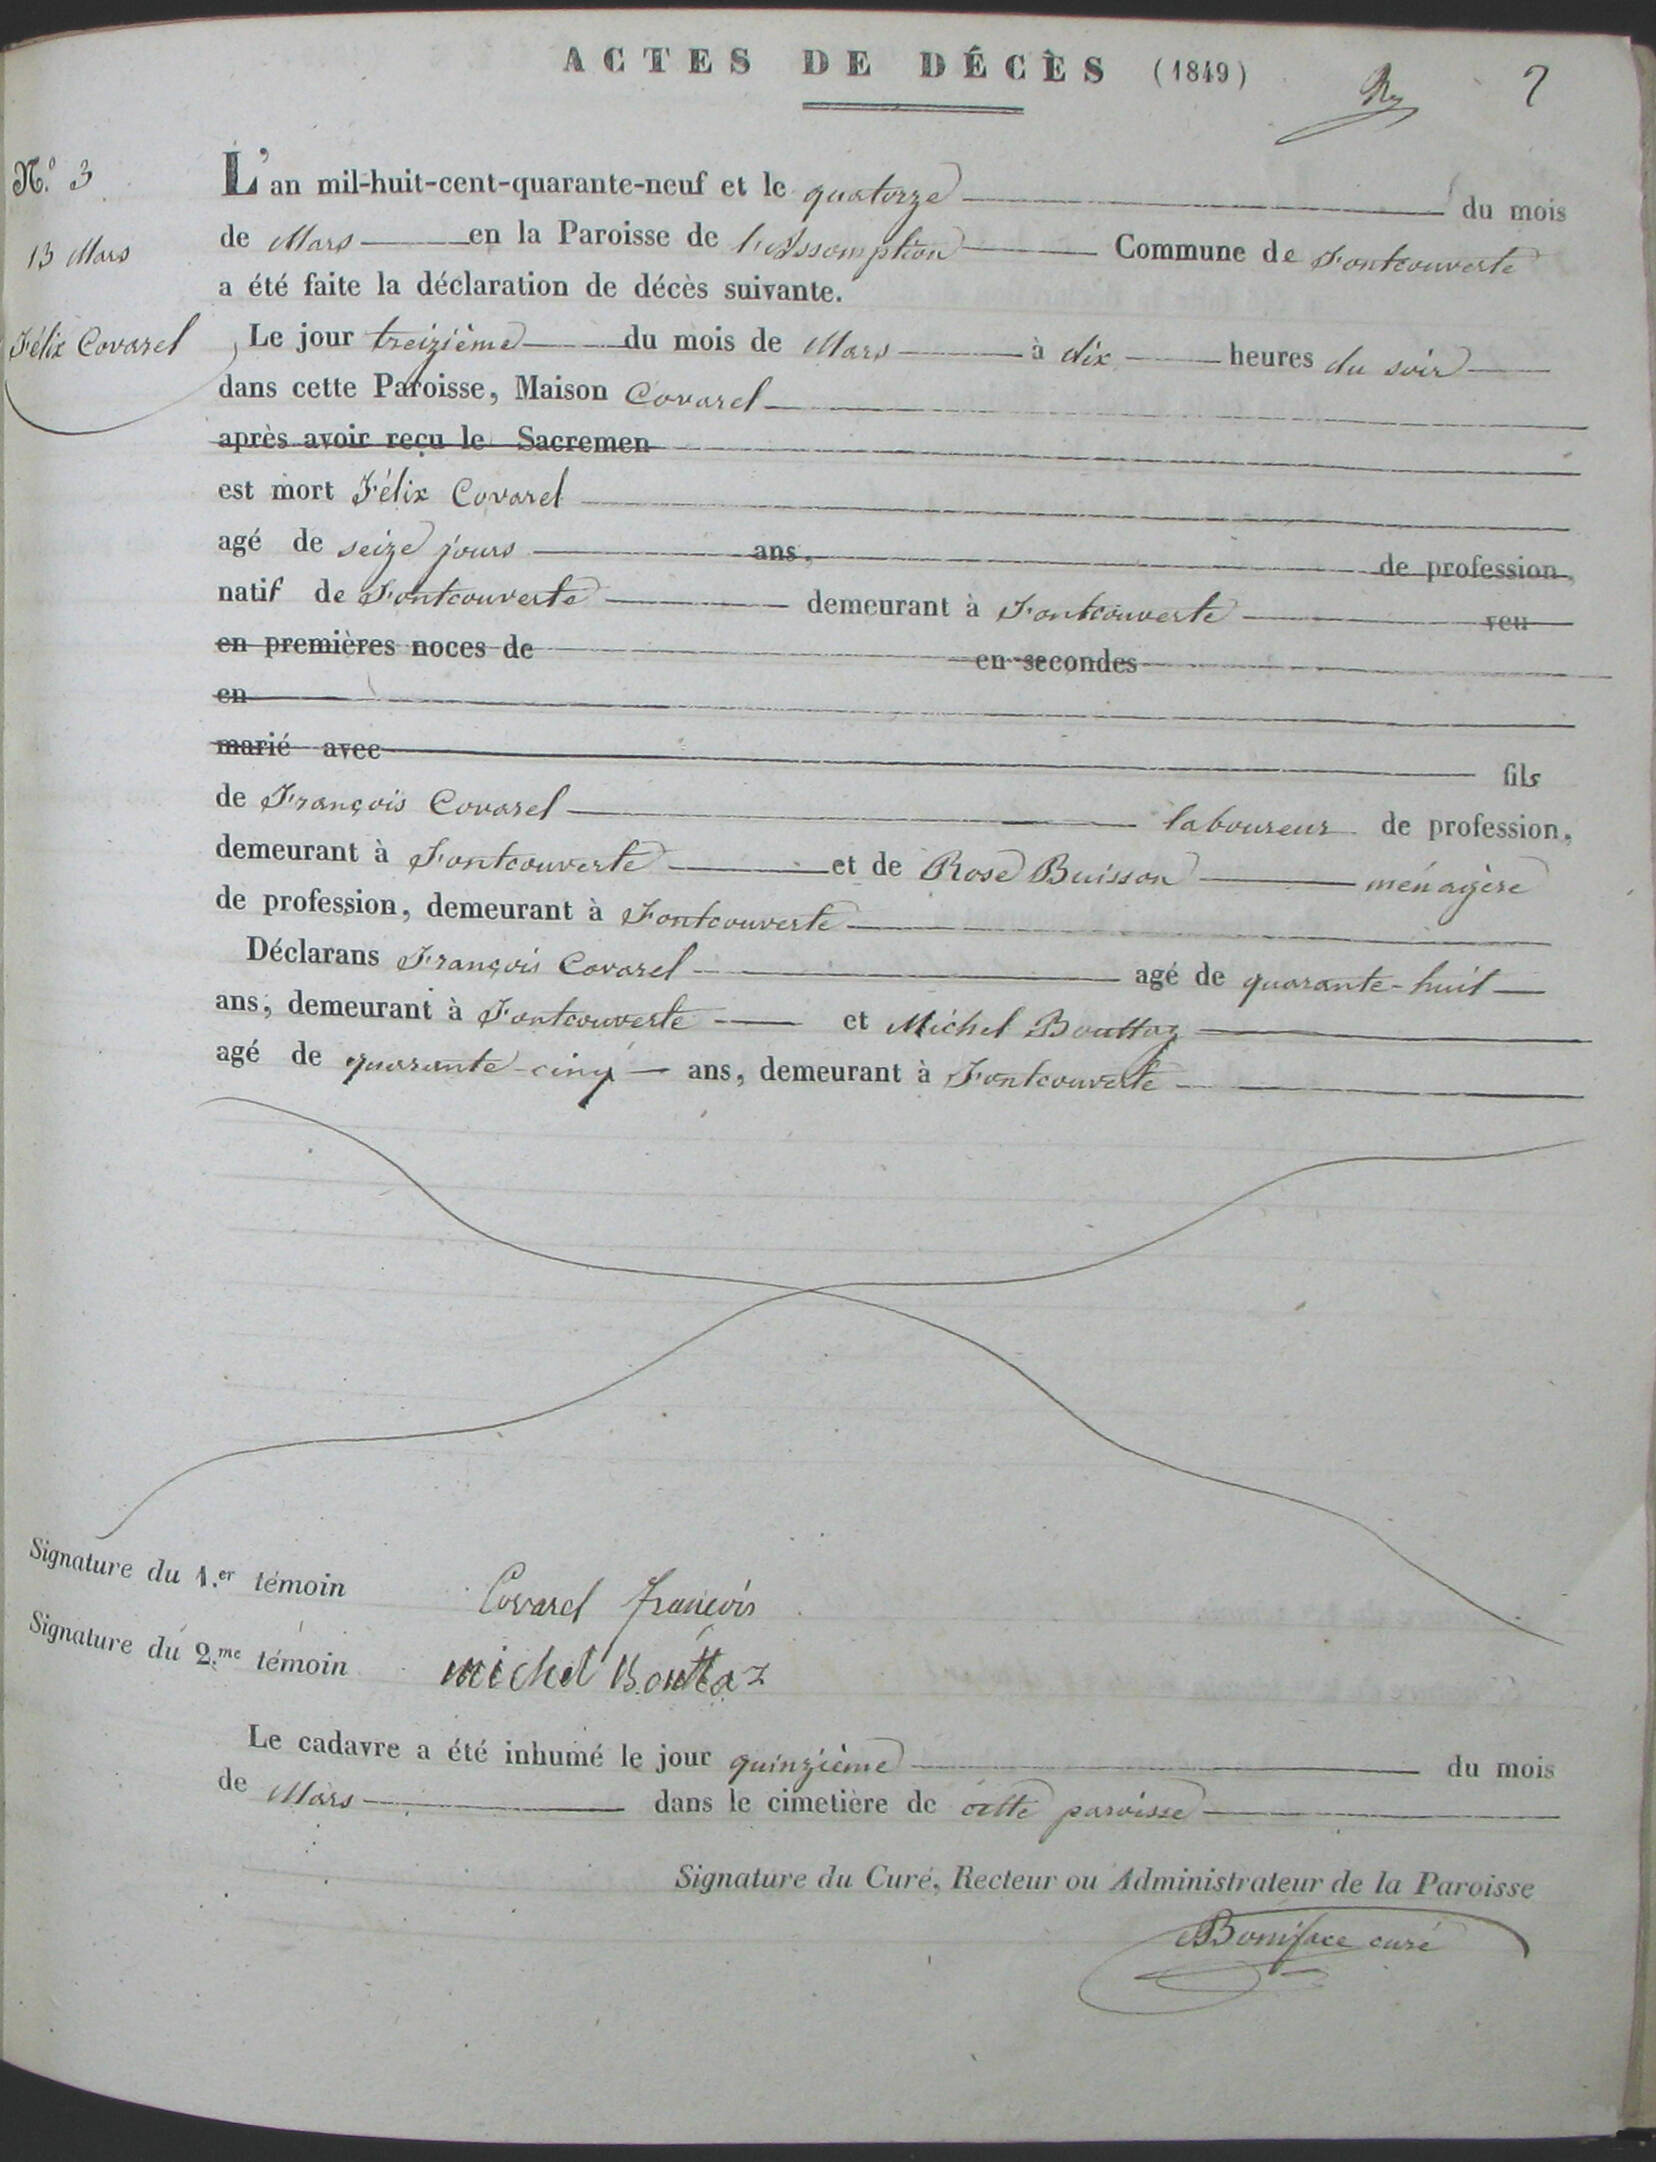 ACTES DE DÉCÈS (1849)
N.º 3
13 Mars
Félix Covarel
L'an mil-huit-cent-quarante-neuf et le quatorze du mois
de Mars en la Paroisse de l'Assomption Commune de Fontcouverte
a été faite la déclaration de décès suivante.
Le jour treizième du mois de Mars à dix heures du soir
dans cette Paroisse, Maison Covarel
après avoir reçu le Sacremen
est mort Félix Covarel
agé de seize jours ans, de profession,
natif de Fontcouverte demeurant à Fontcouverte veu
en premières noces de en secondes
en
marié avec fils
de François Covarel laboureur de profession,
demeurant à Fontcouverte et de Rose Buisson ménagère
de profession, demeurant à Fontcouverte
Déclarans François Covarel agé de quarante-huit
ans, demeurant à Fontcouverte et Michel Bouttaz
agé de quarante-cinq ans, demeurant à Fontcouverte
Signature du 1.er témoin Covarel françois
Signature du 2.me témoin michel Bouttaz
Le cadavre a été inhumé le jour quinzième du mois
de Mars dans le cimetière de cette paroisse
Signature du Curé, Recteur ou Administrateur de la Paroisse
Boniface curé